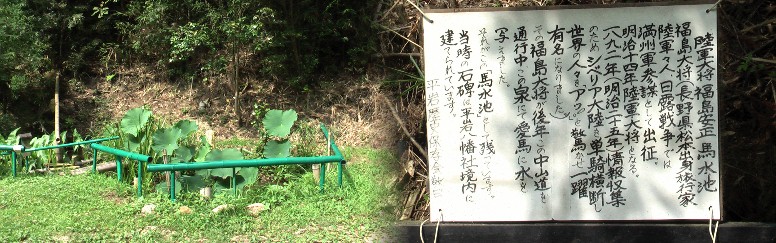 陸軍大将 福島安正 馬水池
福島大将 長野県松本出身 旅行家
陸軍々人 日露戦争では
満州軍参謀として出征。
明治四十年陸軍大将となる。
一八九二年(明治二十五年)情報収集
のためシベリア大陸を単騎横断し
世界の人々をアッと驚かし一躍
有名になりました。
その福島大将が後年この中山道を
通行中この泉にて愛馬に水を
与えました。
それがこの馬水池として残っています。
当時の石碑は平岩八幡社境内に
建てられています。